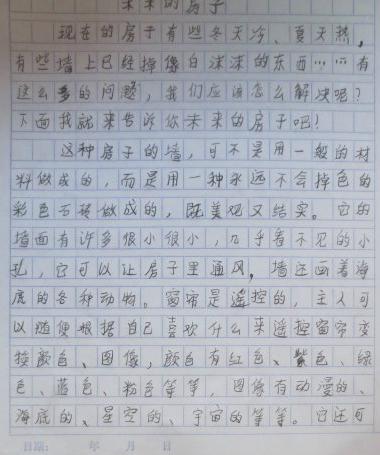 未来的房子
现在的房子有些冬天冷、夏天热，
有些墙上已经掉像白沫沫的东西……有
这么多的问题，我们应该怎么解决呢？
下面我就来告诉你未来的房子吧！
这种房子的墙，可不是用一般的材
料做成的，而是用一种永远不会掉色的
彩色石砖做成的，既美观又结实。它的
墙面有许多很小很小，几乎看不见的小
孔，它可以让房子里通风，墙还画着海
底的各种动物。窗帘是遥控的，主人可
以随便根据自己喜欢什么来遥控窗帘变
换颜色、图像，颜色有红色、紫色、绿
色、蓝色、粉色等等，图像有动漫的、
海底的、星空的、宇宙的等等。它还可
日期： 年 月 日